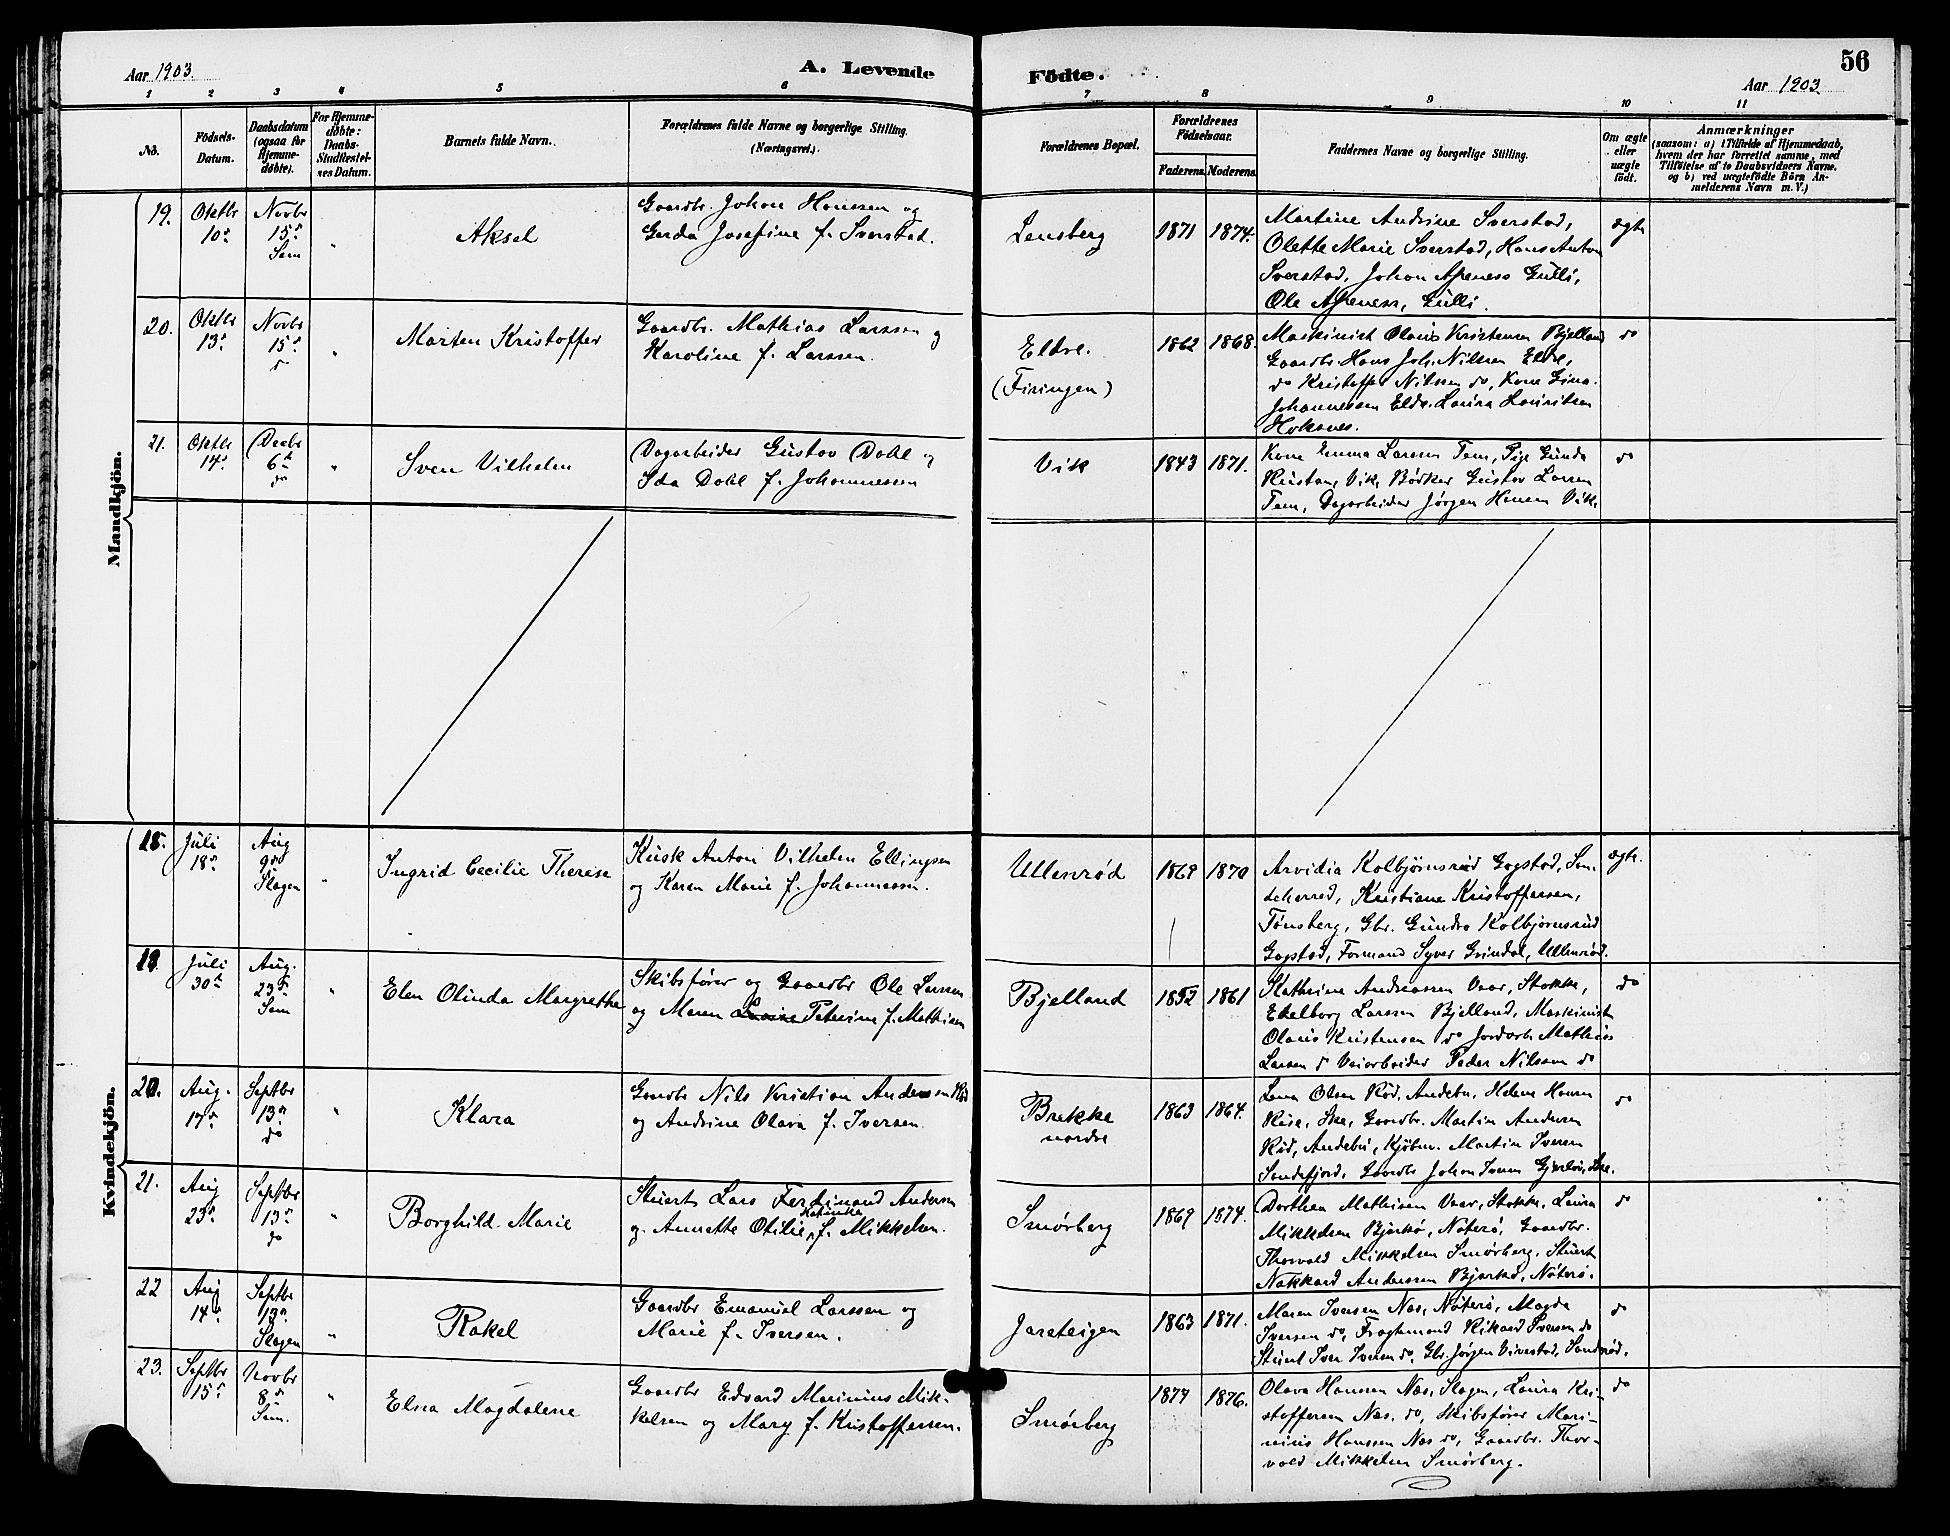 Aar 1903.
A. Levende
Födte.
56
Aar 1903.
1 2 3 4 5 6 7 8 9 10 11
No.
Födsels-
Datum.
Daabsdatum
(ogsaa for
Hjemme-
döbte).
For Hjemme-
döbte:
Daabs-
Stadfæstel-
ses Datum.
Barnets fulde Navn.
Forældrenes fulde Navne og borgerlige Stilling.
(Næringsvei.)
Forældrenes Bopæl.
Forældrenes
Födselsaar.
Faderens. Moderens.
Faddernes Navne og borgerlige Stilling.
Om ægte
eller
uægte
födt.
Anmærkninger
(saasom: a) i Tilfælde af Hjemmedaab,
hvem der har forrettet samme, med
Tilföielse af to Daabsvidners Navne.
og b) ved uægtefödte Börn An-
melderens Navn m. V.)
Mandkjön.
19.
Oktbr
10
Novbr
15
Sem
"
Aksel
Gaardbr. Johan Hanssen og
Gerda Josefine f. Sverstad.
Lensberg
1871 1874.
Martine Andrine Sverstad,
Olette Marie Sverstad, Hans Anton
Sverstad, Johan Apeness Gulli,
Ole Apeness, Gulli.
ægte
20.
Oktbr
13
Novbr
15
do
"
Morten Kristoffer
Gaardbr. Mathias Larssen og
Karoline f. Larssen.
Eldre.
(Firingen)
1862 1868.
Maskinist Olaus Kristensen Bjelland
Gaardbr. Hans Joh. Nilsen Eldre,
do Kristoffer Nilssen do, Kone Gina
Johannessen Eldre. Laura Lauritsen
Hoksnes.
do
21.
Oktbr
14
Decbr
6
do
"
Sven Vilhelm
Dagarbeider Gustav Dahl og
Ida Dahl f. Johannessen
Vik
1843 1871.
Kone Emma Larssen Tem, Pige Gunda
Kristan, Vik, Bødker Gustav Larsen
Tem, Dagarbeider Jørgen Hansen Vik.
do
Kvindekjön.
18.
Juli
18
Aug
9
Slagen
"
Ingrid Cecilie Therese
Kusk Anton Vilhelm Ellingsen
og Karen Marie f. Johannessen.
Ullenrød
1869 1870
Arvidia Kolbjørnsrud Gogstad, San-
deherred, Kristiane Kristoffersen,
Tønsberg, Gbr. Gundro Kolbjørnsrud
Gogstad, Formand Syver Grindal, Ullenrød.
ægte.
19.
Juli
30
Aug.
23
Sem
"
Elen Olinda Margrethe
Skibsfører og Gaardbr Ole Larsen
og Maren Petrine f. Mathisen
Bjelland
1852 1861
Kathrine Andreassen Vaar, Stokke,
Ekelborg Larssen Bjelland, Maskinist
Olaus Kristensen do Jordarb Mathias
Larsen do Veiarbeider Peder Nilssen do
do
20.
Aug.
17
Septbr
13
do
"
Klara
Gaardbr Nils Kristian Anderssen Rød
og Andrine Olava f. Iversen.
Brekke
nordre
1863 1864.
Lena Olsen Rød, Andebu, Helene Hansen
Ruse, Ske, Gaardbr. Martin Andersen
Rød, Andebu, Kjøbm. Martin Iversen
Sandefjord, Gaardbr Johan Iversen
do
21.
Aug
23
Septbr
13
do
"
Borghild Marie
Stuert Lars Ferdinand Andersen
og. Annette Otilie Katinka f. Mikkelsen.
Smørberg
1869 1874.
Dorthea Mathisen Vaar, Stokke, Laura
Mikkelsen Bjerkø, Nøterø, Gaardbr.
Thorvald Mikkelsen Smørberg, Stuert
Andersen Nøterø.
do
22
Aug
14
Septbr
13
Slagen
"
Rakel
Gaardbr Emanuel Larssen og
Marie f. Iversen.
Jareteigen
1863 1871.
Maren Iversen Nes, Nøterø, Magda
Iversen do, Fragtemand Rikard Iversen do
Stuert Iver Iversen do, Gbr. Jørgen Virestad, Sandrød.
do
23.
Septbr
15
Novbr
8
Sem.
"
Elna Magdalene
Gaardbr Edvard Marinius Mik-
kelsen og Mary f. Kristoffersen.
Smørberg
1877 1876.
Olava Hanssen Nes, Slagen, Laura Kri-
stoffersen Nes. do, Skibsfører Mari-
nius Hanssen Nes do, Gaardbr. Thor-
vald Mikkelsen Smørberg.
do